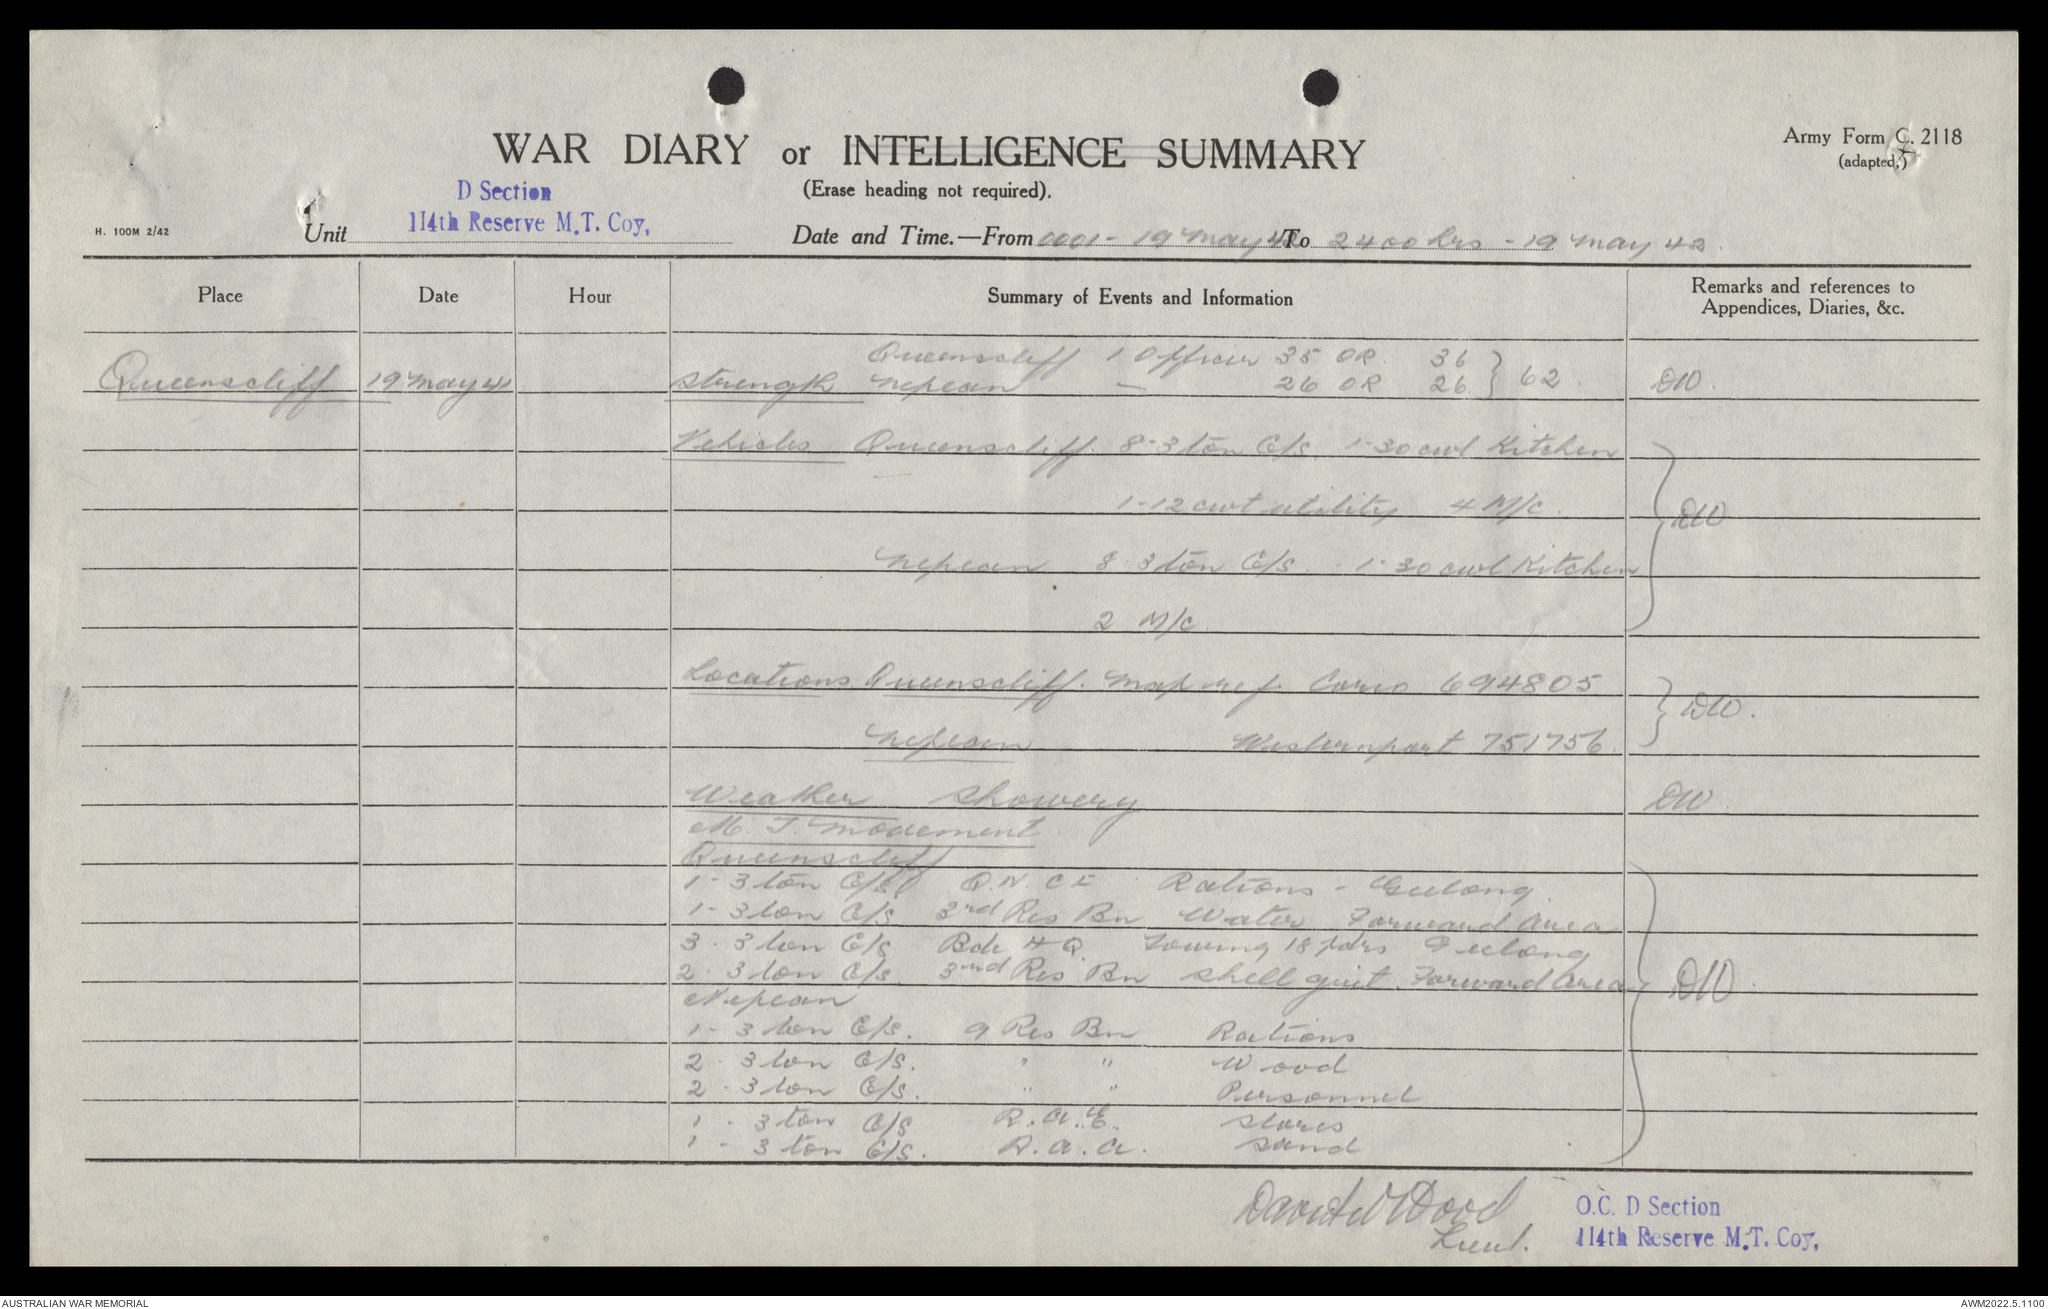 WAR DIARY or INTELLIGENCE SUMMARY
Army Form C. 2118
(adapted.)
(Erase heading not required).
D Section
114th Reserve M.T. Coy,
H. 100M 2/42
Unit
Date and Time.—From 0001 - 19 May 42 To 2400 hrs - 19 May 42.
Place Date Hour Summary of Events and Information Remarks and references to
Appendices, Diaries, &c.
Queenscliff 1 Officer 35 OR. 36
Queenscliff 19 May 41 Strength Nepean — 26 OR 26 } 62. DW.
Vehicles Queenscliff. 8-3 ton C/S. 1-30 cwt Kitchen
1-12 cwt utility 4 M/c. DW
Nepean 8-3 ton C/S. 1-30 cwt Kitchen
2 M/c.
Locations. Queenscliff. Map ref. Corio 694805
DW.
Nepean Westernport 751756.
Weather Showery DW
M. T. Movement.
Queenscliff
1-3 ton C/S. Rations - Geelong.
1-3 ton C/S 3rd Res Bn Water Forward Area
3-3 ton C/S. Bde HQ. Towing 18 pdrs Geelong
2-3 ton C/S. 3rd Res Bn Shell grit. Forward Area DW.
Nepean
1-3 ton C/S. 9 Res Bn Rations
2-3 ton C/S. " " Wood
2-3 ton C/S. " " Personnel
1-3 ton C/S R.A.E. Stores
1-3 ton C/S. R.A.A. Sand
David W Wood
Lieut.
O.C. D Section
114th Reserve M.T. Coy,
AUSTRALIAN WAR MEMORIAL
AWM2022.5.1100